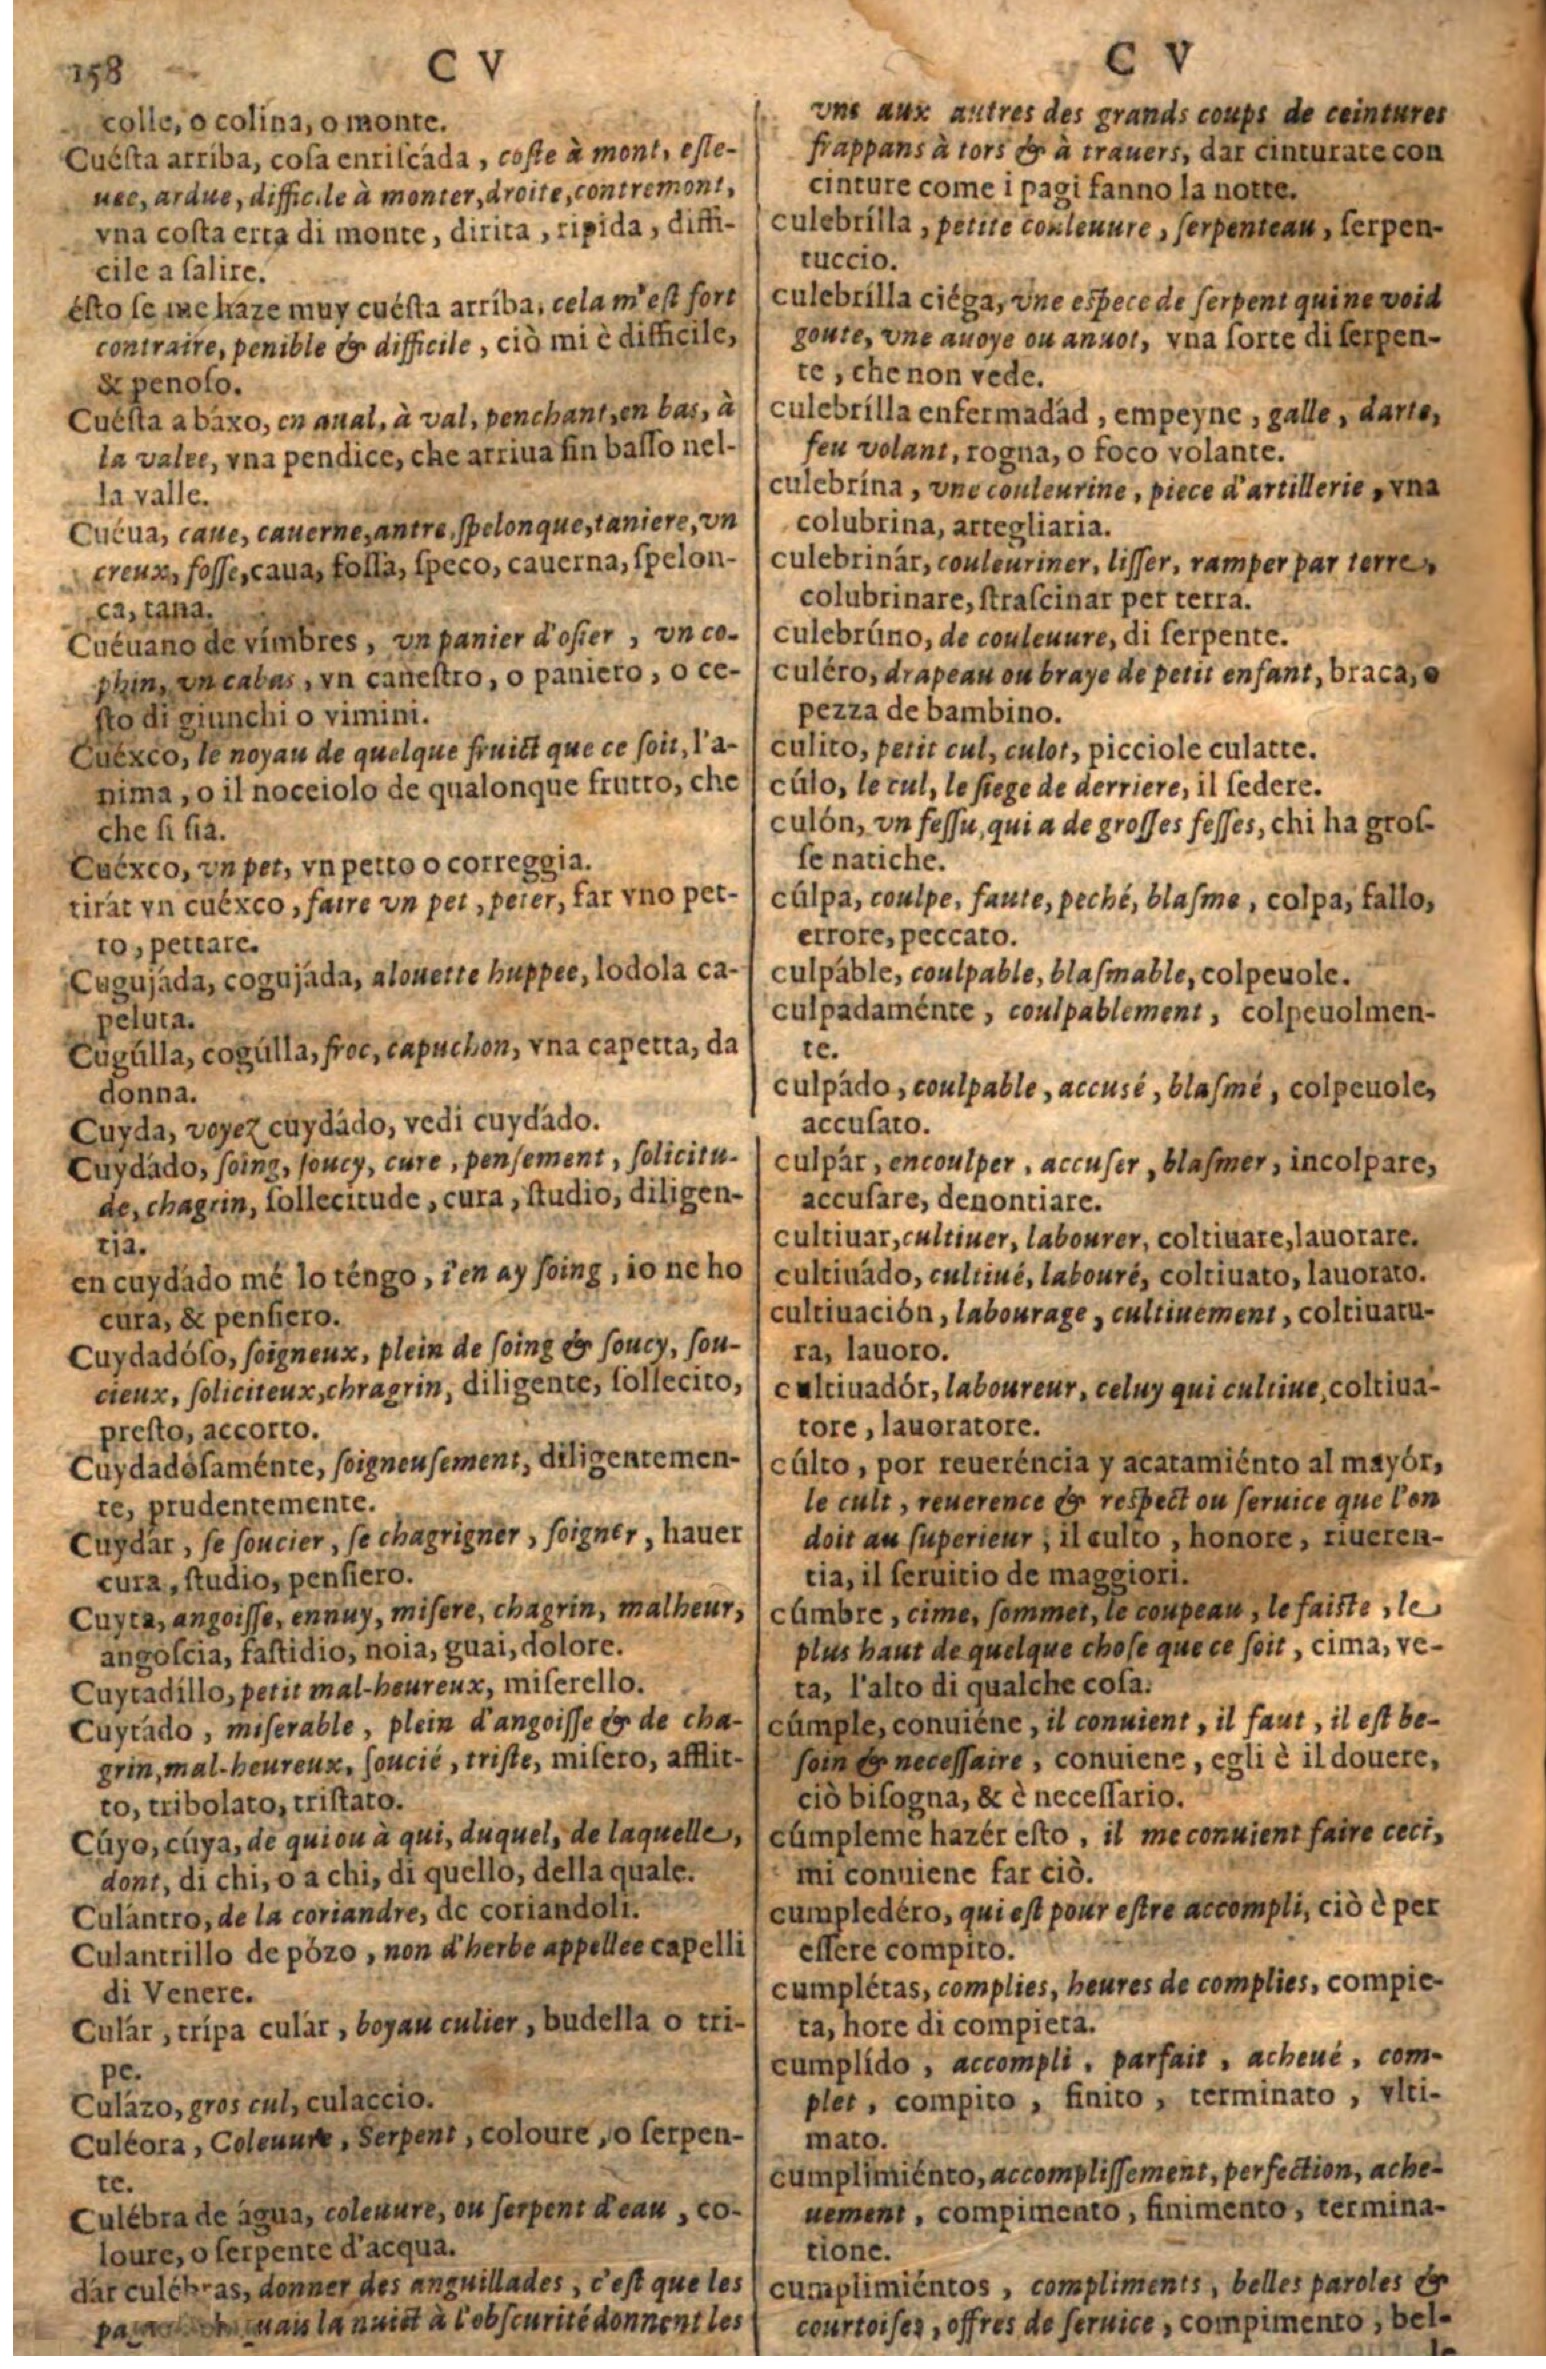 158
C V
colle, o colina, o monte.
Cuésta arríba, cosa enriscáda, coste à mont, esle-
uee, ardue, difficile à monter, droite, contremont,
vna costa erta di monte, dirita, ripida, diffi-
cile a salire.
ésto se me haze muy cuésta arríba, cela m'est fort
contraire, penible & difficile, ciò mi è difficile,
& penoso.
Cuésta abáxo, en aual, à val, penchant, en bas, à
la valee, vna pendice, che arriua fin basso nel-
la valle.
Cuéua, caue, cauerne, antre, spelonque, taniere, vn
creux, fosse, caua, fossa, speco, cauerna, spelon-
ca, tana.
Cuéuano de vímbres, vn panier d'osier, vn co-
phin, vn cabas, vn canestro, o paniero, o ce-
sto di giunchi o vimini.
Cuéxco, le noyau de quelque fruict que ce soit, l'a-
nima, o il nocciolo de qualonque frutto, che
che si sia.
Cuéxco, vn pet, vn petto o correggia.
tirár vn cuéxco, faire vn pet, peter, far vno pet-
to, pettare.
Cugujáda, cogujáda, alouette huppee, lodola ca-
peluta.
Cugúlla, cogúlla, froc, capuchon, vna capetta, da
donna.
Cuyda, voyez cuydádo, vedi cuydádo.
Cuydádo, soing, soucy, cure, pensement, solicitu-
de, chagrin, sollecitude, cura, studio, diligen-
tia.
en cuydádo mé lo téngo, i'en ay soing, io ne ho
cura, & pensiero.
Cuydadóso, soigneux, plein de soing & soucy, sou-
cieux, soliciteux, chragrin, diligente, sollecito,
presto, accorto.
Cuydadósaménte, soigneusement, diligentemen-
te, prudentemente.
Cuydár, se soucier, se chagrigner, soigner, hauer
cura, studio, pensiero.
Cuyta, angoisse, ennuy, misere, chagrin, malheur,
angoscia, fastidio, noia, guai, dolore.
Cuytadíllo, petit mal-heureux, miserello.
Cuytádo, miserable, plein d'angoisse & de cha-
grin, mal-heureux, soucié, triste, misero, afflit-
to, tribolato, tristato.
Cúyo, cúya, de qui ou à qui, duquel, de laquelle,
dont, di chi, o a chi, di quello, della quale.
Culántro, de la coriandre, de coriandoli.
Culantrillo de pózo, non d'herbe appellee capelli
di Venere.
Culár, trípa culár, boyau culier, budella o tri-
pe.
Culázo, gros cul, culaccio.
Culéora, Coleuure, Serpent, coloure, o serpen-
te.
Culébra de água, coleuure, ou serpent d'eau, co-
loure, o serpente d'acqua.
dár culébras, donner des anguillades, c'est que les
la nuict à l'obscurité donnent les
C V
vns aux autres des grands coups de ceintures
frappans à tors & à trauers, dar cinturate con
cinture come i pagi fanno la notte.
culebrílla, petite couleuure, serpenteau, serpen-
tuccio.
culebrílla ciéga, vne espece de serpent qui ne void
goute, vne auoye ou anuot, vna sorte di serpen-
te, che non vede.
culebrílla enfermadád, empeyne, galle, darte,
feu volant, rogna, o foco volante.
culebrína, vne couleurine, piece d'artillerie, vna
colubrina, artegliaria.
culebrinár, couleuriner, lisser, ramper par terre,
colubrinare, strascinar per terra.
culebrúno, de couleuure, di serpente.
culéro, drapeau ou braye de petit enfant, braca, o
pezza de bambino.
culito, petit cul, culot, picciole culatte.
cúlo, le cul, le siege de derriere, il sedere.
culón, vn fessu, qui a de grosses fesses, chi ha gros-
se natiche.
cúlpa, coulpe, faute, peché, blasme, colpa, fallo,
errore, peccato.
culpáble, coulpable, blasmable, colpeuole.
culpadaménte, coulpablement, colpeuolmen-
te.
culpádo, coulpable, accusé, blasmé, colpeuole,
accusato.
culpár, encoulper, accuser, blasmer, incolpare,
accusare, denontiare.
cultiuar, cultiuer, labourer, coltiuare, lauorare.
cultiuádo, cultiué, labouré, coltiuato, lauorato.
cultiuación, labourage, cultiuement, coltiuatu-
ra, lauoro.
cultiuadór, laboureur, celuy qui cultiue, coltiua-
tore, lauoratore.
cúlto, por reueréncia y acatamiénto al mayór,
le cult, reuerence & respect ou seruice que l'on
doit au superieur, il culto, honore, riueren-
tia, il seruitio de maggiori.
cúmbre, cime, sommet, le coupeau, le faiste, le
plus haut de quelque chose que ce soit, cima, ve-
ta, l'alto di qualche cosa.
cúmple, conuiéne, il conuient, il faut, il est be-
soin & necessaire, conuiene, egli è il douere,
ciò bisogna, & è necessario.
cúmpleme hazér esto, il me conuient faire ceci,
mi conuiene far ciò.
cumpledéro, qui est pour estre accompli, ciò è per
essere compito.
cumplétas, complies, heures de complies, compie-
ta, hore di compieta.
cumplído, accompli, parfait, acheué, com-
plet, compito, finito, terminato, vlti-
mato.
cumplimiénto, accomplissement, perfection, ache-
uement, compimento, finimento, termina-
tione.
cumplimiéntos, compliments, belles paroles &
courtoises, offres de seruice, compimento, bel-
le